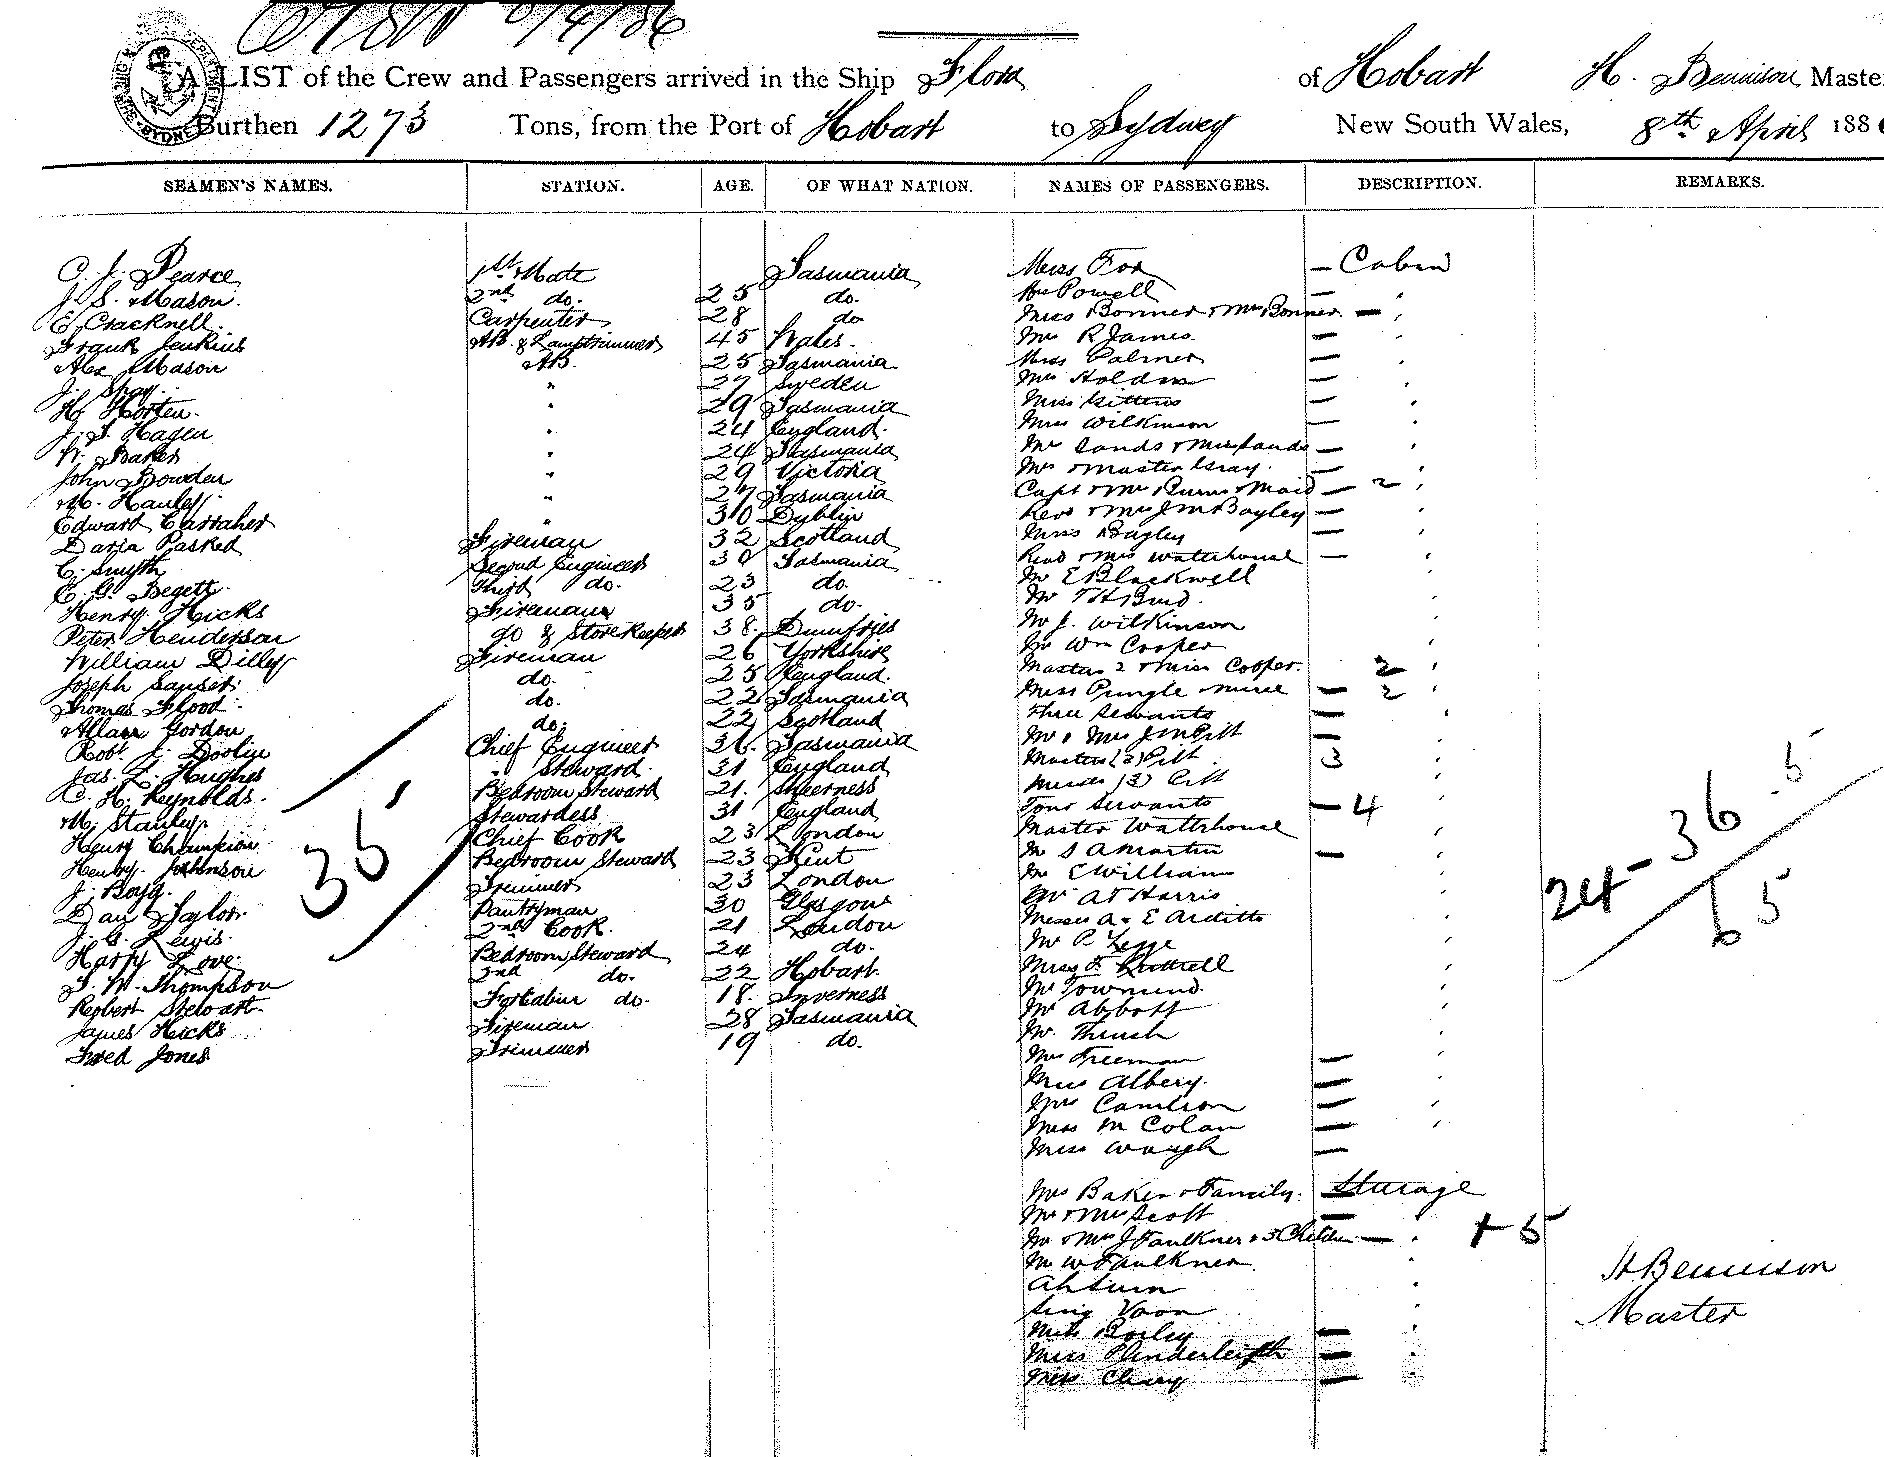 A LIST of the Crew and Passengers arrived in the Ship Flora of Hobart H. Bennison Master
Burthen 1273 Tons, from the Port of Hobart to Sydney New South Wales, 8th April 188
SEAMEN'S NAMES. STATION. AGE. OF WHAT NATION. NAMES OF PASSENGERS. DESCRIPTION. REMARKS.
C. J. Pearce 1st Mate Tasmania Miss Fox — Cabin
J. S. Mason. 2nd do. 25 do. Powell —
E. Cracknell. Carpenter 28 do Miss Bonner & Mrs Bonner —
Frank Jenkins AB. & Lamptrimmer 45 Wales. Mrs R James —
Alex Mason AB. 25 Tasmania Miss Palmer —
J. Shay. " 27 Sweden Mrs Holdin —
H. Horten. " 29 Tasmania Miss Gittens —
J. S. Hagen " 24 England. Miss Wilkinson —
W. Baker " 24 Tasmania Mr Sands & Miss Sands —
John Bowden " 29 Victoria Mrs & Master Gray. —
M. Hanley " 27 Tasmania Capt & Mrs Burns & Maid — 2
Edward Carraher " 30 Dublin Revd & Mrs J M Bayley —
Fireman 32 Scotland Miss Bayley —
C. Smyth Second Engineer 30 Tasmania Revd & Mrs Waterhouse —
E. G. Begett Third do. 23 do. Mr E Blackwell
Henry Hicks Fireman 35 do. Mr T H Burd.
Peter Henderson do & Storekeeper 38. Dumfries Mr J. Wilkinson
William Dilley Fireman 26 Yorkshire Mr Wm Cooper
Joseph do. 25 England. Masters 2 & Miss Cooper. 2
Thomas Flood. do. 22 Tasmania Miss Pringle nurse — 2
Allan Gordon do. 22 Scotland Three Servants —
Robt J. Doolin Chief Engineer 36. Tasmania Mr & Mrs J Pitt —
Jas. L. Hughes " Steward. 31 England Masters (2) Pitt 3
C. H. Reynolds. Bedroom Steward 21. Sheerness Misses (3) Pitt
M. Stanley. Stewardess 31 England Four Servants — 4
Henry Champion. Chief Cook 23 London Master Waterhouse
Henry Johnson Bedroom Steward 23 Kent Mr S A Martin —
J. Boyd. Trimmer 23 London Mr C William
Dan Taylor. Pantryman 30 Glasgow Mr A T Harris
J. G. Lewis. 2nd Cook. 21 London Messrs A & E Arditto
Harry Love. Bedroom Steward 24 do. Mr P. Legge
J. W. Thompson 2nd do. 22 Hobart. F. Luttrell
Robert Stewart. Forecabin do. 18. Inverness Mr Townsend.
James Hicks Fireman 28 Tasmania Mr Abbott
Fred Jones Trimmer 19 do. Mr. Thrush
Mrs Freeman —
Miss Albery. —
Mrs Cameron —
Miss M Colan —
Miss Waugh —
35
24 - 36 5
65
Mrs Baker & Family. — Steerage
Mr & Mrs Scott —
Mr & Mrs J Faulkner & 3 Children — + 5
Mr W Faulkner
Ah Sum
Sing Voon
Miss Bailey —
Miss Plenderleith —
Miss Cleary —
H Bennison
Master